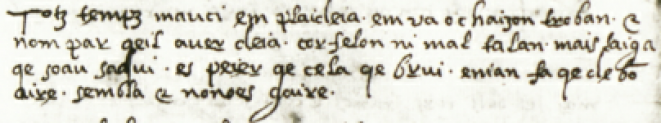 Totz temps mauci em plaideia · em va ochaison troban · &
nom par qeil auer deia · cor felon ni mal talan · mais faiga
qe soau sadui · es peier qe cela qe brui · enian fa qe de bō
aire · sembla & non oes gaire ·